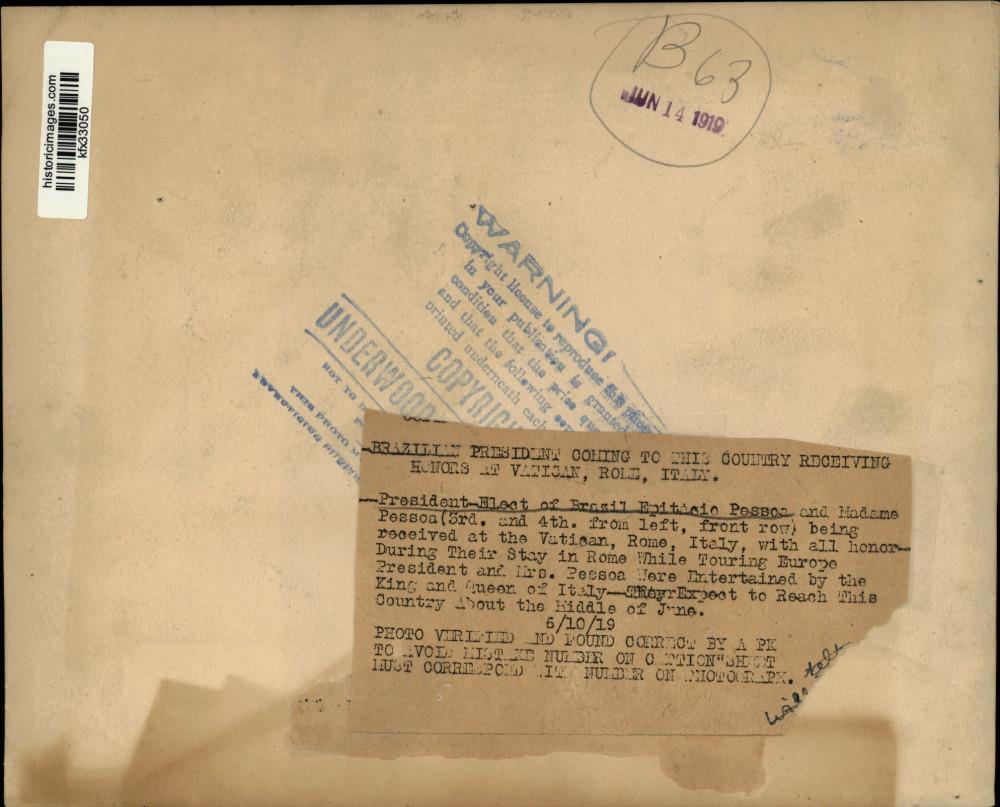 historicimages.com
kfx33050
B 63
JUN 14 1919
WARNING!
Copyright license to reproduce this photo
in your publication is granted
condition that the price
and that the following
printed underneath each
COPYRIG
UNDERWOOD
NOT TO
THIS PHOTO
ADVERTISING
BRAZILIAN PRESIDENT COMING TO THIS COUNTRY RECEIVING
HONORS AT VATICAN, ROME, ITALY.
President-Elect of Brazil Epitacio Pessoa and Madame
Pessoa(3rd. and 4th. from left, front row) being
received at the Vatican, Rome, Italy, with all honor
During Their Stay in Rome While Touring Europe
President and Mrs. Pessoa Were Entertained by the
King and Queen of Italy--They Expect to Reach This
Country About the Middle of June.
6/10/19
PHOTO VERIFIED AND FOUND CORRECT BY A PK
TO AVOID MISTAKE NUMBER ON CAPTION"SHEET
MUST CORRESPOND WITH NUMBER ON PHOTOGRAPH.